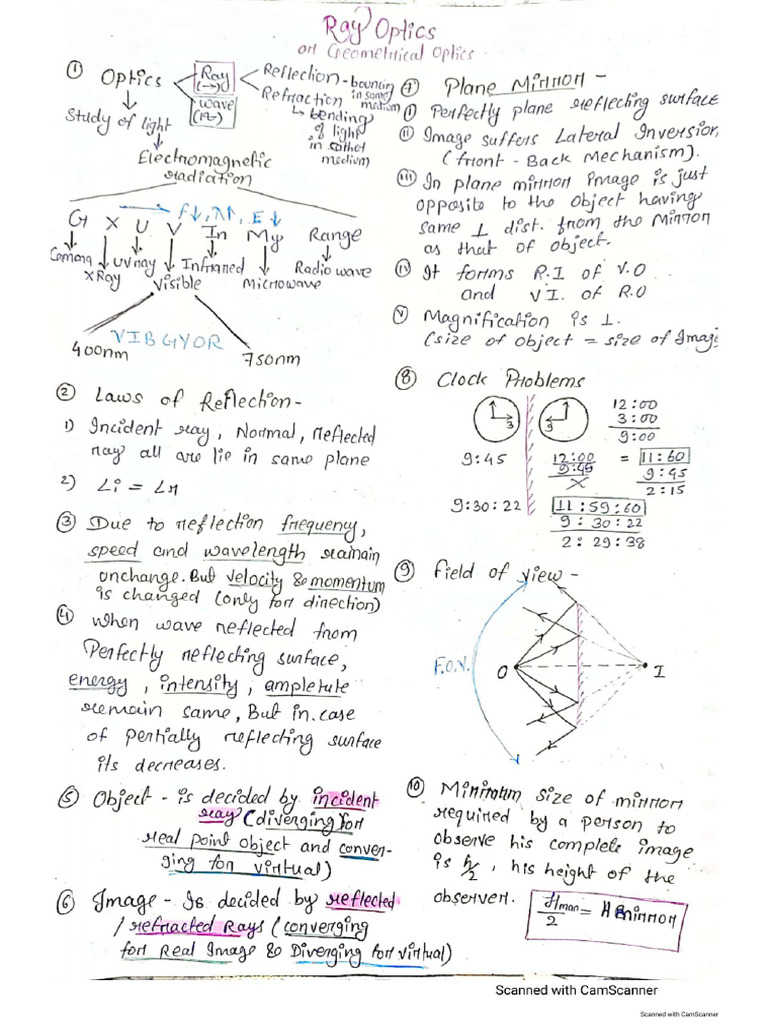 Ray Optics
or Geometrical Optics
① Optics
Ray
(→)
wave
Reflection - bouncing
in same
medium
Refraction
↳ bending
of light
medium
Study of light
Electromagnetic
radiation
f↓, λ↑, E↓
G X U V In My Range
Gamma
X Ray
UV ray
Visible
Infrared
Microwave
Radio wave
VIBGYOR
400nm
750nm
② Laws of Reflection-
1) Incident ray, Normal, reflected
ray all are lie in same plane
2) ∠i = ∠r
③ Due to reflection frequency,
speed and wavelength remain
unchange. But velocity & momentum
is changed (only for direction)
④ when wave reflected from
Perfectly reflecting surface,
energy, intensity, ampletute
remain same, But in case
of pertially reflecting surface
its decreases.
⑤ Object - is decided by incident
ray (diverging for
real point object and conver-
ging for virtual)
⑥ Image - Is decided by reflected
/ refracted Rays (converging
for Real Image & Diverging for virtual)
⑦ Plane Mirror -
ⓘ Perfectly plane reflecting surface
ⓘⓘ Image suffers Lateral Inversion
(front - Back Mechanism).
ⓘⓘⓘ In plane mirror image is just
opposite to the object having
same ⊥ dist. from the Mirror
as that of object.
ⓘⓥ It forms R.I of V.O
and V I. of R.O
ⓥ Magnification is 1.
(size of object = size of Image
⑧ Clock Problems
3
3
12:00
3:00
9:00
9:45
12:00
9:45
X
= 11:60
9:45
2:15
9:30:22
11:59:60
9:30:22
2:29:38
⑨ Field of view -
F.O.V.
O
I
⑩ Minimum size of mirror
required by a person to
observe his complete image
is h/2, his height of the
observer.
Hman/2 = H mirror
Scanned with CamScanner
Scanned with CamScanner